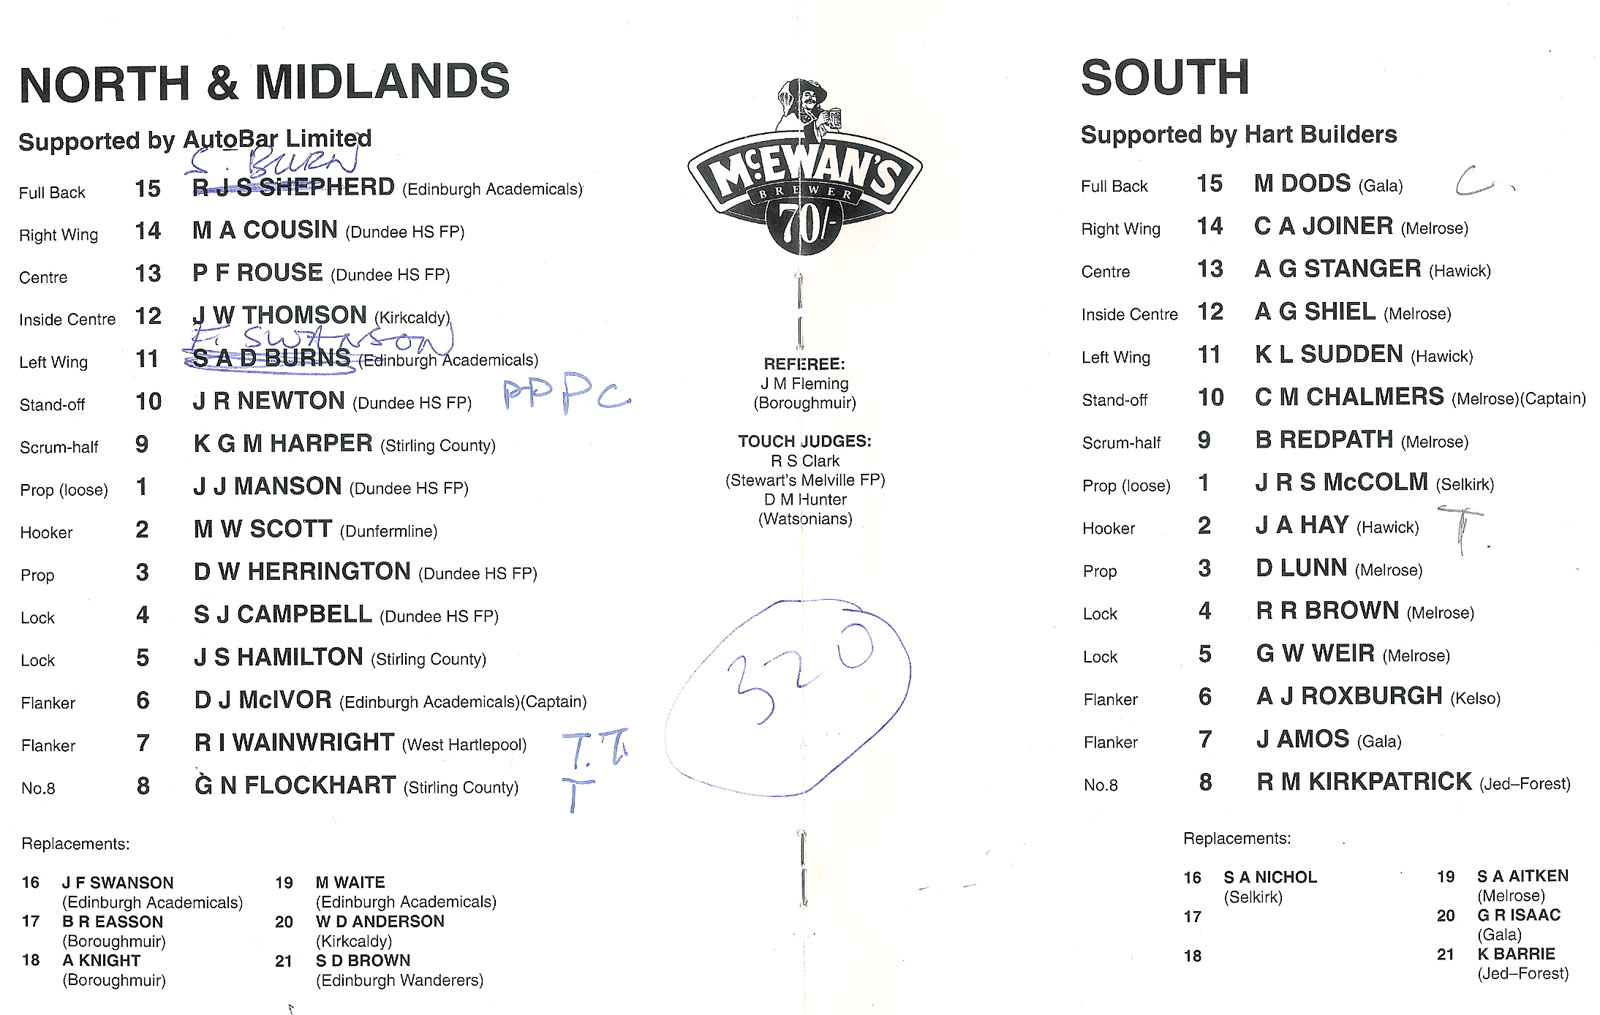 NORTH & MIDLANDS
Supported by AutoBar Limited
S. BURN
Full Back 15 R J S SHEPHERD (Edinburgh Academicals)
Right Wing 14 M A COUSIN (Dundee HS FP)
Centre 13 P F ROUSE (Dundee HS FP)
Inside Centre 12 J W THOMSON (Kirkcaldy)
F. SWANSON
Left Wing 11 S A D BURNS (Edinburgh Academicals)
Stand-off 10 J R NEWTON (Dundee HS FP) PPPC
Scrum-half 9 K G M HARPER (Stirling County)
Prop (loose) 1 J J MANSON (Dundee HS FP)
Hooker 2 M W SCOTT (Dunfermline)
Prop 3 D W HERRINGTON (Dundee HS FP)
Lock 4 S J CAMPBELL (Dundee HS FP)
Lock 5 J S HAMILTON (Stirling County)
Flanker 6 D J McIVOR (Edinburgh Academicals)(Captain)
Flanker 7 R I WAINWRIGHT (West Hartlepool) T.T.
No.8 8 G N FLOCKHART (Stirling County) T
Replacements:
16 J F SWANSON
(Edinburgh Academicals)
17 B R EASSON
(Boroughmuir)
18 A KNIGHT
(Boroughmuir)
19 M WAITE
(Edinburgh Academicals)
20 W D ANDERSON
(Kirkcaldy)
21 S D BROWN
(Edinburgh Wanderers)
McEWAN'S
BREWER
70/-
REFEREE:
J M Fleming
(Boroughmuir)
TOUCH JUDGES:
R S Clark
(Stewart's Melville FP)
D M Hunter
(Watsonians)
320
SOUTH
Supported by Hart Builders
Full Back 15 M DODS (Gala) C.
Right Wing 14 C A JOINER (Melrose)
Centre 13 A G STANGER (Hawick)
Inside Centre 12 A G SHIEL (Melrose)
Left Wing 11 K L SUDDEN (Hawick)
Stand-off 10 C M CHALMERS (Melrose)(Captain)
Scrum-half 9 B REDPATH (Melrose)
Prop (loose) 1 J R S McCOLM (Selkirk)
Hooker 2 J A HAY (Hawick) T.
Prop 3 D LUNN (Melrose)
Lock 4 R R BROWN (Melrose)
Lock 5 G W WEIR (Melrose)
Flanker 6 A J ROXBURGH (Kelso)
Flanker 7 J AMOS (Gala)
No.8 8 R M KIRKPATRICK (Jed–Forest)
Replacements:
16 S A NICHOL
(Selkirk)
17
18
19 S A AITKEN
(Melrose)
20 G R ISAAC
(Gala)
21 K BARRIE
(Jed–Forest)